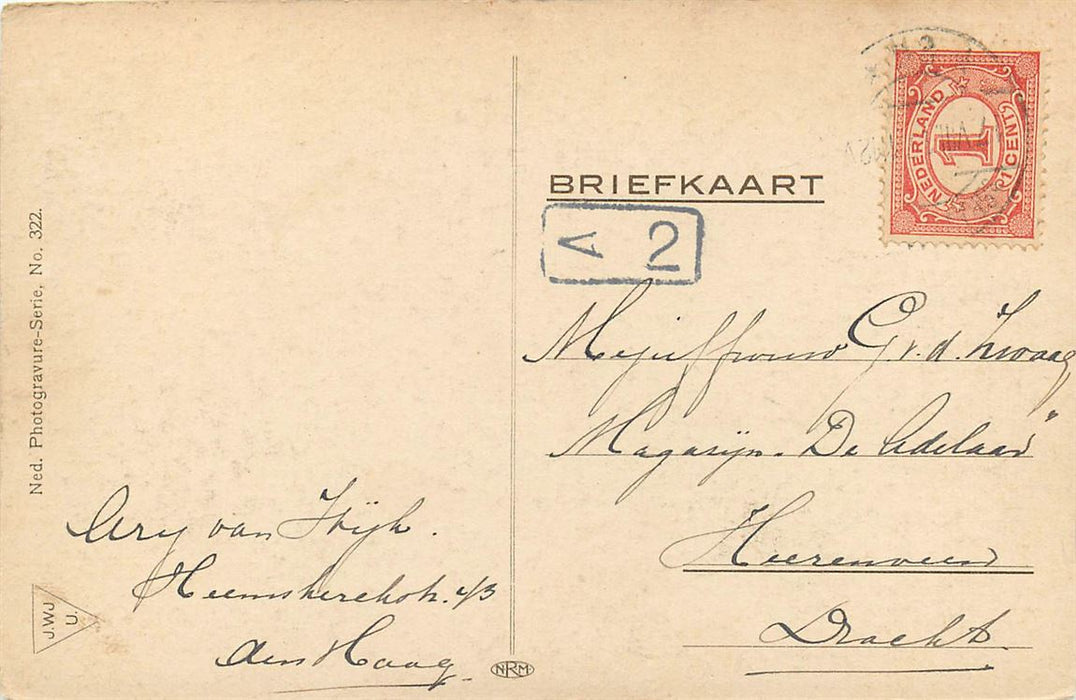 Ned. Photogravure-Serie, No. 322.
J.WJ
U.
Ary van
Heemskerckstr. 43
den Haag
NRM
BRIEFKAART
A 2
NEDERLAND
1
1 CENT
Mejuffrouw G. v. d. Zwaag
Magasijn "De Adelaar"
Heerenveen
Dracht.